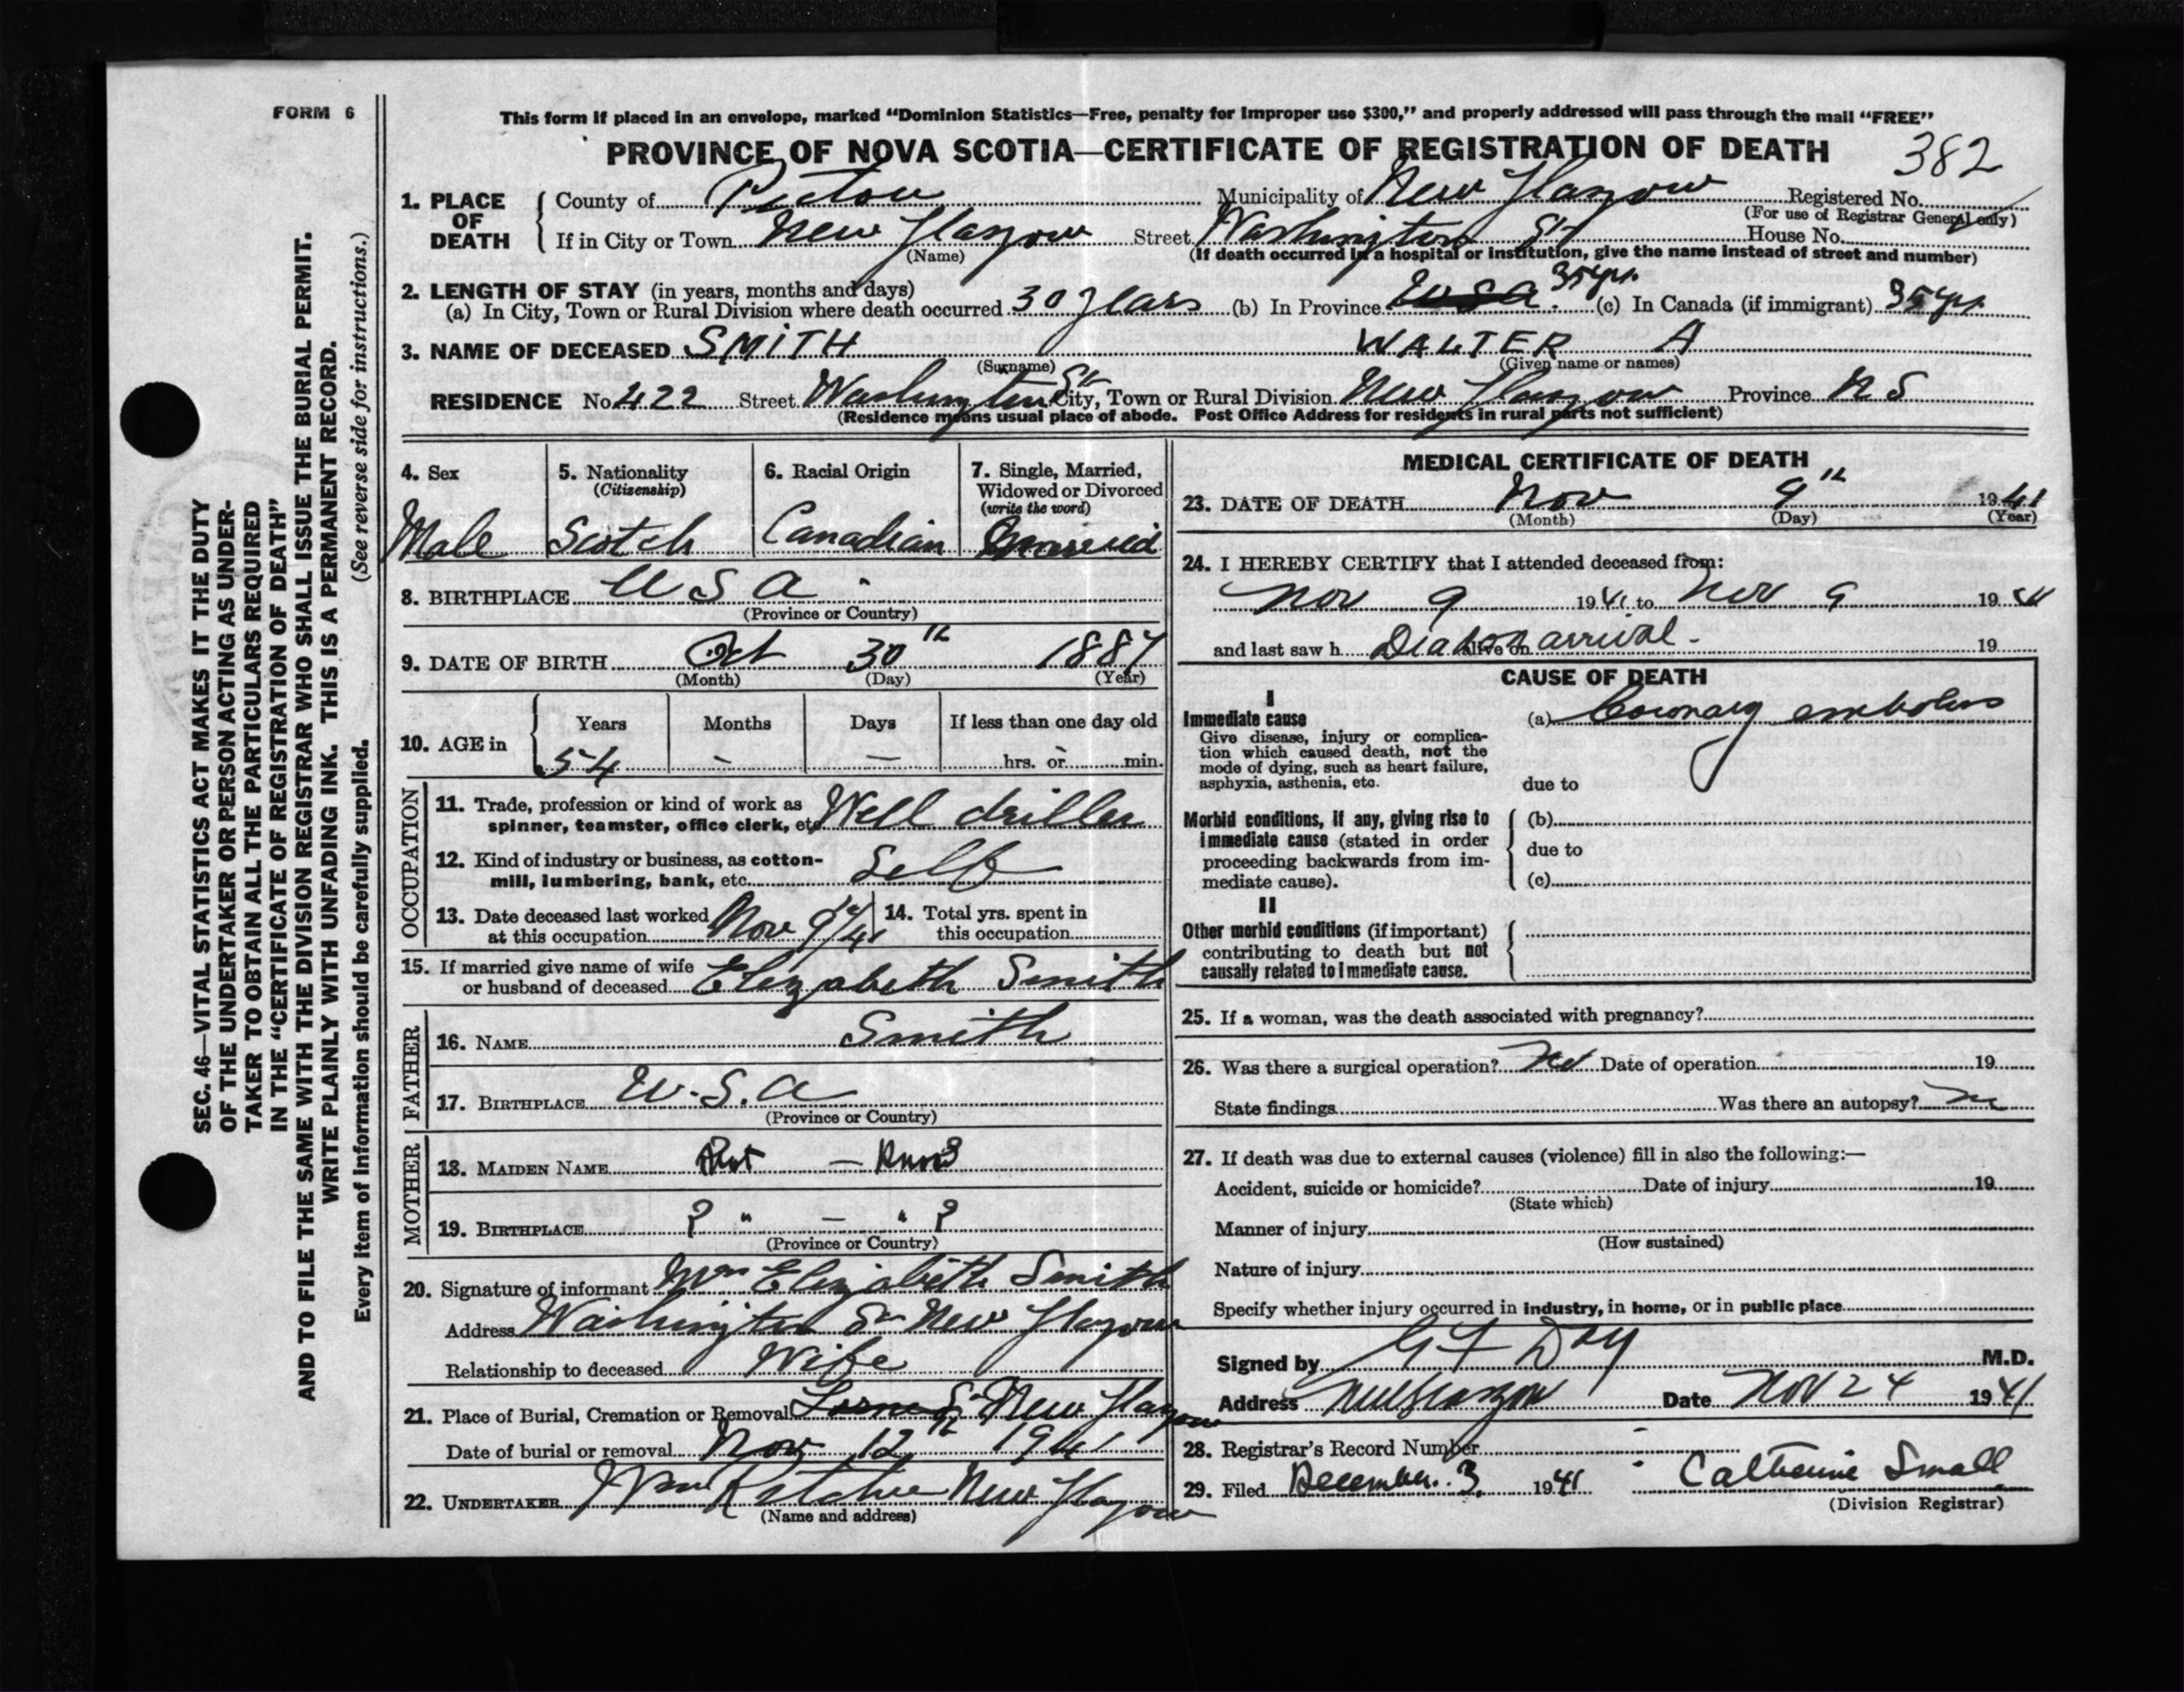 FORM 6
This form if placed in an envelope, marked "Dominion Statistics—Free, penalty for improper use $300," and properly addressed will pass through the mail "FREE"
PROVINCE OF NOVA SCOTIA—CERTIFICATE OF REGISTRATION OF DEATH 382
1. PLACE OF DEATH County of Pictou Municipality of New Glasgow Registered No.
(For use of Registrar General only)
If in City or Town New Glasgow Street Washington St House No.
(Name) (If death occurred in a hospital or institution, give the name instead of street and number)
2. LENGTH OF STAY (in years, months and days)
(a) In City, Town or Rural Division where death occurred 30 years (b) In Province USA 35 yrs. (c) In Canada (if immigrant) 35 yrs
3. NAME OF DECEASED SMITH WALTER A
(Surname) (Given name or names)
RESIDENCE No. 422 Street Washington St City, Town or Rural Division New Glasgow Province N S
(Residence means usual place of abode. Post Office Address for residents in rural parts not sufficient)
4. Sex Male
5. Nationality (Citizenship) Scotch
6. Racial Origin Canadian
7. Single, Married, Widowed or Divorced (write the word) Married
8. BIRTHPLACE U S A
(Province or Country)
9. DATE OF BIRTH Oct 30th 1887
(Month) (Day) (Year)
10. AGE in Years Months Days If less than one day old
54 — — hrs. or min.
OCCUPATION
11. Trade, profession or kind of work as spinner, teamster, office clerk, etc. Well driller
12. Kind of industry or business, as cotton-mill, lumbering, bank, etc. Self
13. Date deceased last worked at this occupation Nov 9th/41
14. Total yrs. spent in this occupation
15. If married give name of wife or husband of deceased Elizabeth Smith
FATHER
16. NAME Smith
17. BIRTHPLACE U.S.A
(Province or Country)
MOTHER
18. MAIDEN NAME Not — Known
19. BIRTHPLACE ? " — " ?
(Province or Country)
20. Signature of informant Mrs Elizabeth Smith
Address Washington St New Glasgow
Relationship to deceased Wife
21. Place of Burial, Cremation or Removal Lorne St New Glasgow
Date of burial or removal Nov 12th 1941
22. UNDERTAKER Ritchie New Glasgow
(Name and address)
MEDICAL CERTIFICATE OF DEATH
23. DATE OF DEATH Nov 9th 1941
(Month) (Day) (Year)
24. I HEREBY CERTIFY that I attended deceased from:
Nov 9 1941 to Nov 9 1941
and last saw h alive on 19
Dead on arrival.
CAUSE OF DEATH
I
Immediate cause
Give disease, injury or complication which caused death, not the mode of dying, such as heart failure, asphyxia, asthenia, etc.
(a) Coronary embolus
due to
Morbid conditions, if any, giving rise to immediate cause (stated in order proceeding backwards from immediate cause).
(b)
due to
(c)
II
Other morbid conditions (if important) contributing to death but not causally related to immediate cause.
25. If a woman, was the death associated with pregnancy?
26. Was there a surgical operation? No Date of operation 19
State findings Was there an autopsy? No
27. If death was due to external causes (violence) fill in also the following:—
Accident, suicide or homicide? Date of injury 19
(State which)
Manner of injury
(How sustained)
Nature of injury
Specify whether injury occurred in industry, in home, or in public place
Signed by G F Day M.D.
Address New Glasgow Date Nov 24 1941
28. Registrar's Record Number
29. Filed December 3, 1941 Catherine Small
(Division Registrar)
SEC. 46—VITAL STATISTICS ACT MAKES IT THE DUTY
OF THE UNDERTAKER OR PERSON ACTING AS UNDER-
TAKER TO OBTAIN ALL THE PARTICULARS REQUIRED
IN THE "CERTIFICATE OF REGISTRATION OF DEATH"
AND TO FILE THE SAME WITH THE DIVISION REGISTRAR WHO SHALL ISSUE THE BURIAL PERMIT.
WRITE PLAINLY WITH UNFADING INK. THIS IS A PERMANENT RECORD.
Every item of information should be carefully supplied. (See reverse side for instructions.)